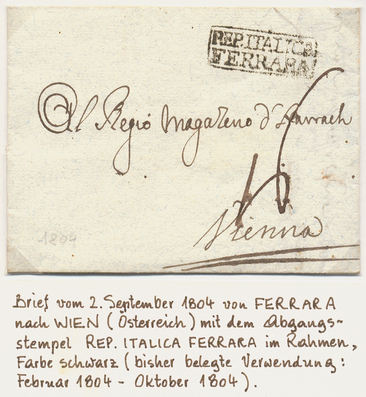 REP. ITALICA
FERRARA
Al Regio Magazeno d'Harrach
Vienna
1804
Brief vom 2. September 1804 von FERRARA
nach WIEN (Österreich) mit dem Abgangs-
stempel REP. ITALICA FERRARA im Rahmen,
Farbe schwarz (bisher belegte Verwendung:
Februar 1804 - Oktober 1804).